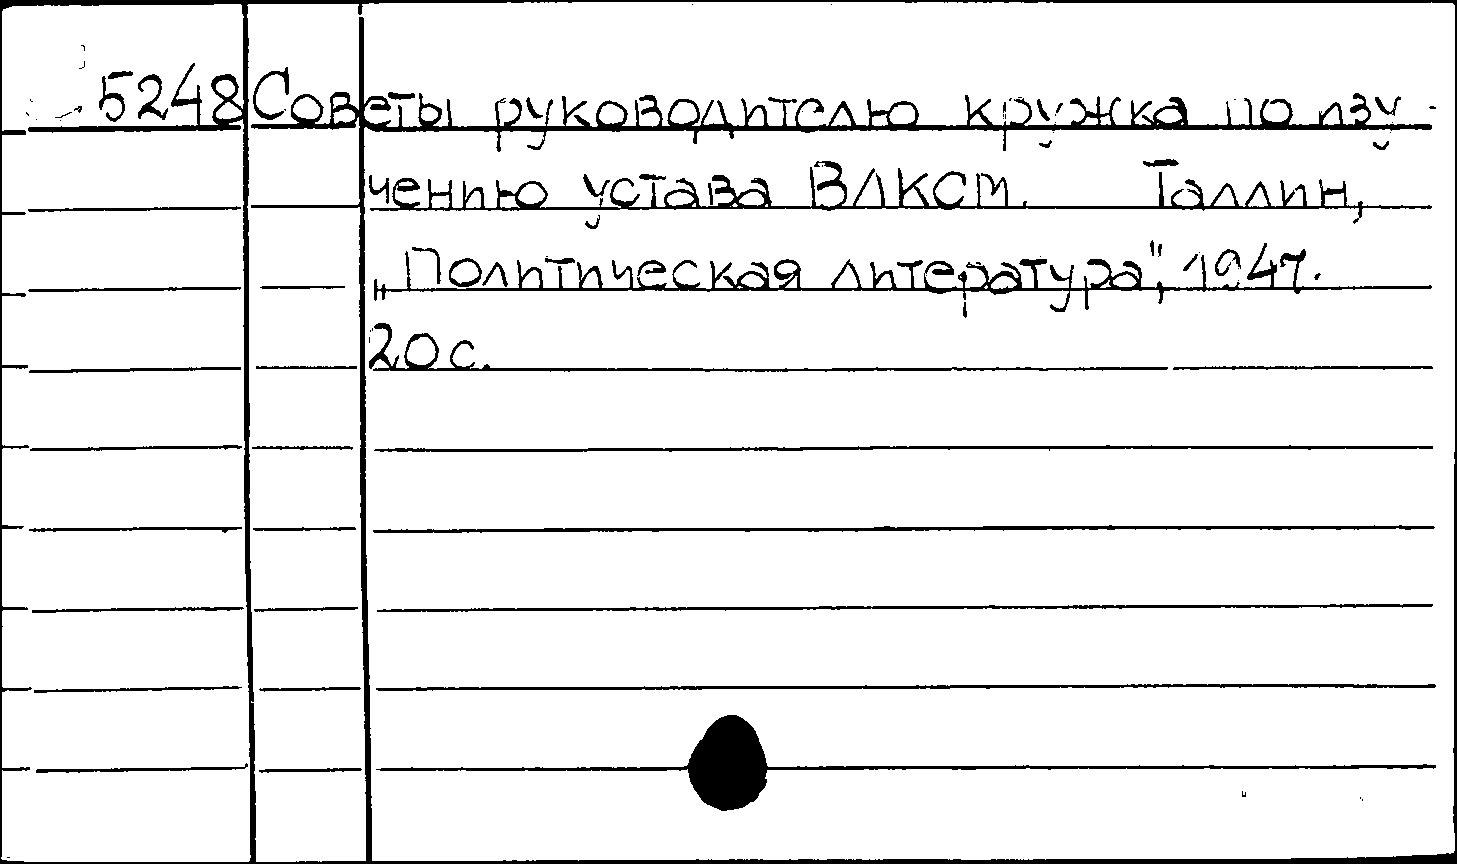 5248 Советы руководителю кружка по изу-
чению устава ВЛКСМ. Таллин,
„Политическая литература", 1947.
20 с.